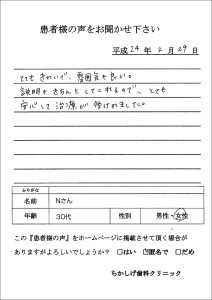 患者様の声をお聞かせ下さい
平成24年2月29日
とてもきれいで、雰囲気も良い。
説明もきちんとしてくれるので、とても
安心して治療が受けれました。
ふりがな
名前 Nさん
年齢 30代 性別 男性・女性
この『患者様の声』をホームページに掲載させて頂く場合が
ありますがよろしいでしょうか？ □はい ☑匿名で □だめ
ちかしげ歯科クリニック